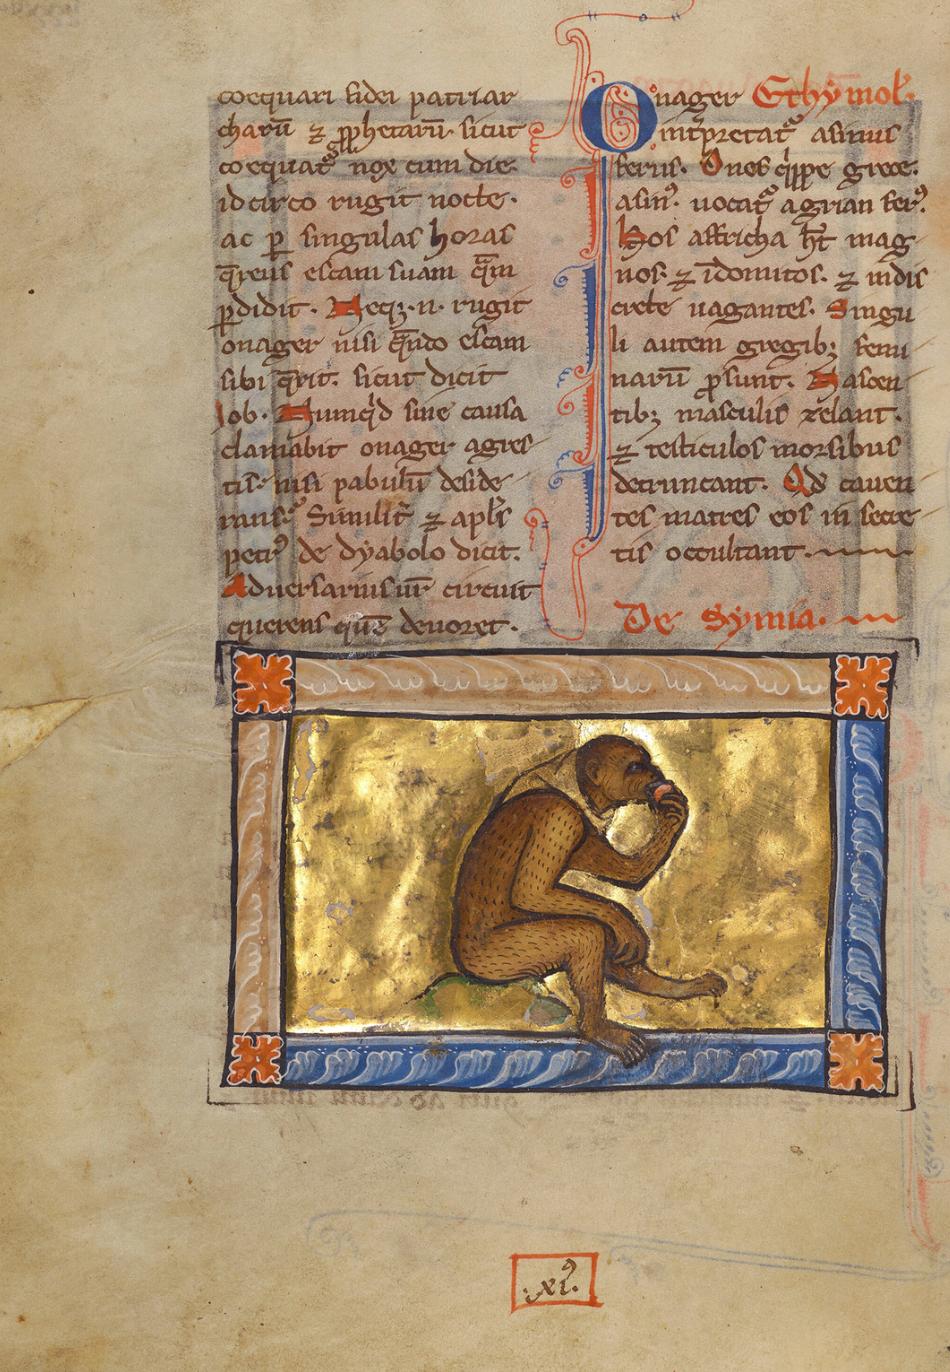 coequari fidei patriar
charū ⁊ ꝓphetarū. sicut
coequat᷑ nox cum die.
idcirco rugit nocte.
ac ꝑ singulas horas
q̄rens escam suam q̄m
ꝑdidit. Neq;.n. rugit
onager nisi q̄ndo escam
sibi q̄rit. sicut dicit
Iob. Numq'd sine causa
clamabit onager agres
nisi pabulū deside
Similit᷑ ⁊ apl's
petr' de dyabolo dicit.
Aduersarius ur̄ circuit
querens quē deuoret.
Onager Ethymol'.
int'pretat᷑ asinus
ferus. Ones q'ppe grece.
asin'. uocat᷑ agrian fer'.
Hos affricha ht̄ mag
nos. ⁊ īdomitos. ⁊ in dis
crete uagantes. Singu
li autem gregib; femi
narū ꝓsunt. Nascen
tib; masculis zelant.
⁊ testiculos morsibus
detruncant. Qd' cauen
tes matres eos in secre
tis occultant.
De Symia.
.xi'.